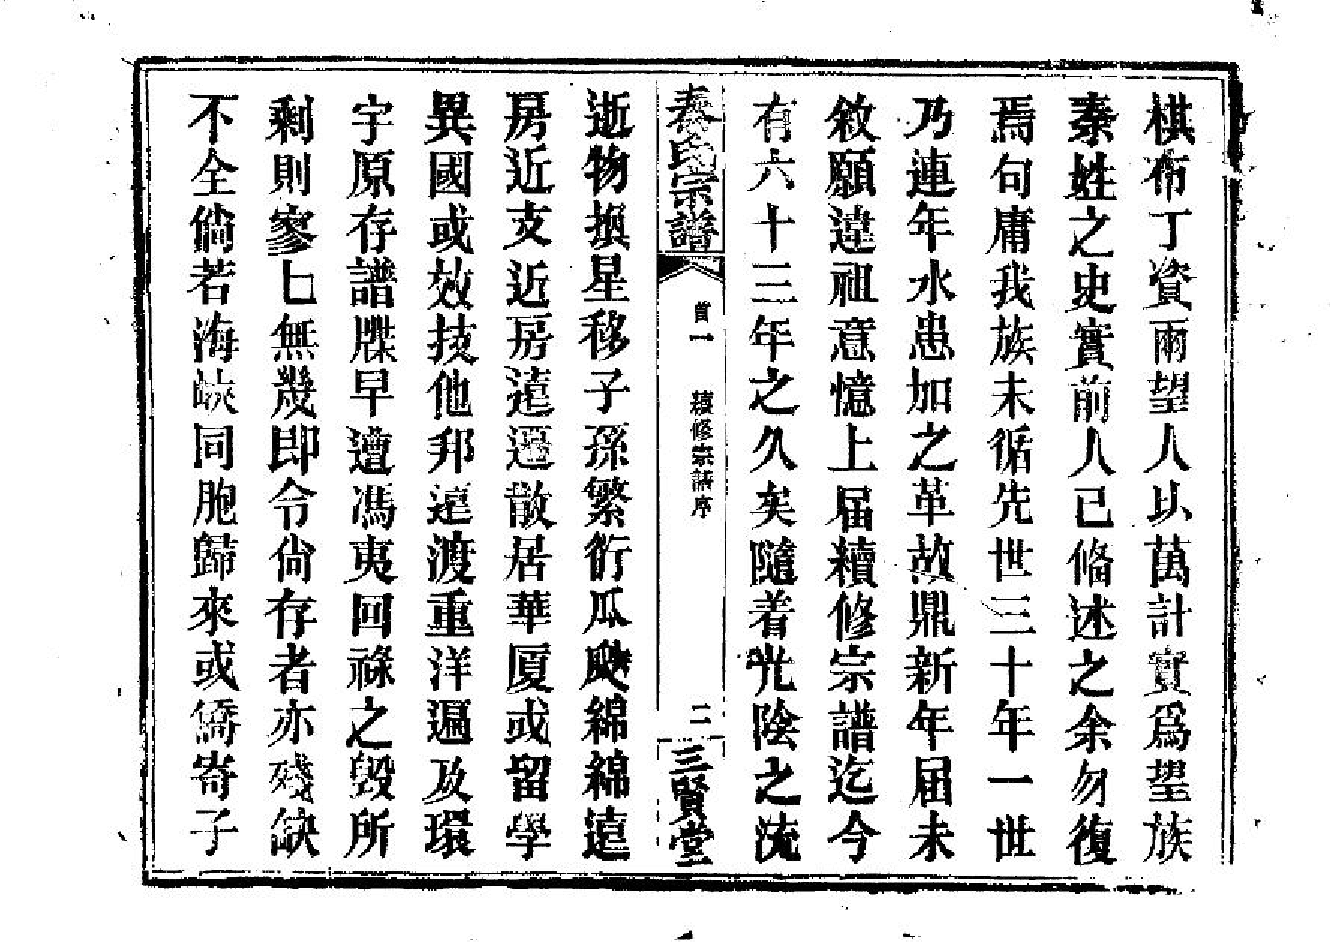 棋布丁資爾望人以萬計實爲望族
秦姓之史實前人已脩述之余勿復
焉句庸我族未循先世三十年一世
乃連年水患加之革故鼎新年届未
敘願違祖意憶上届續修宗譜迄今
有六十三年之久矣隨着光陰之流
秦氏宗譜
首一 續修宗譜序 二
三賢堂
逝物換星移子孫繁衍瓜瓞綿綿遠
房近支近房遠遷散居華厦或留學
異國或效技他邦遠渡重洋遍及環
宇原存譜牒早遭馮夷回祿之毀所
剩則寥匕無幾即令尙存者亦殘缺
不全倘若海峽同胞歸來或僑寄子